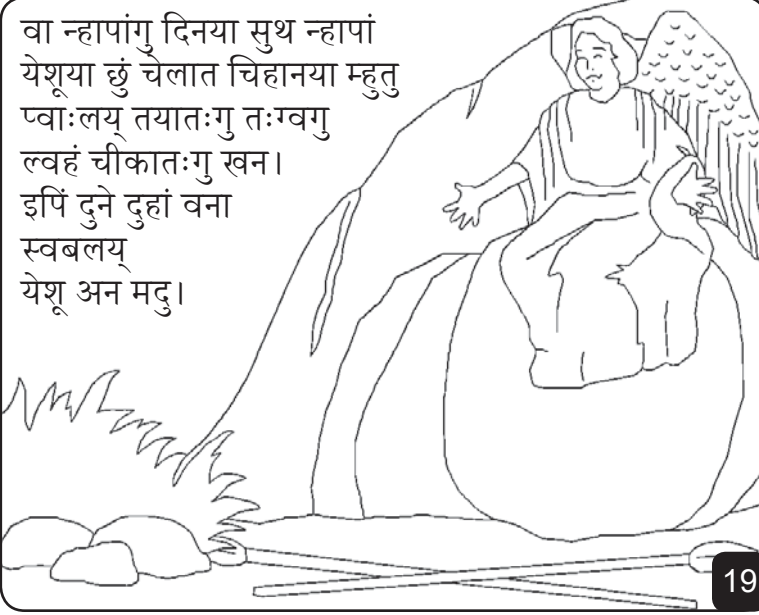 वा न्हापांगु दिनया सुथ न्हापां
येशूया छुं चेलात चिहानया म्हुतु
प्वाःलय् तयातःगु तःग्वगु
ल्वहं चीकातःगु खन।
इपिं दुने दुहां वना
स्वबलय्
येशू अन मदु।
19